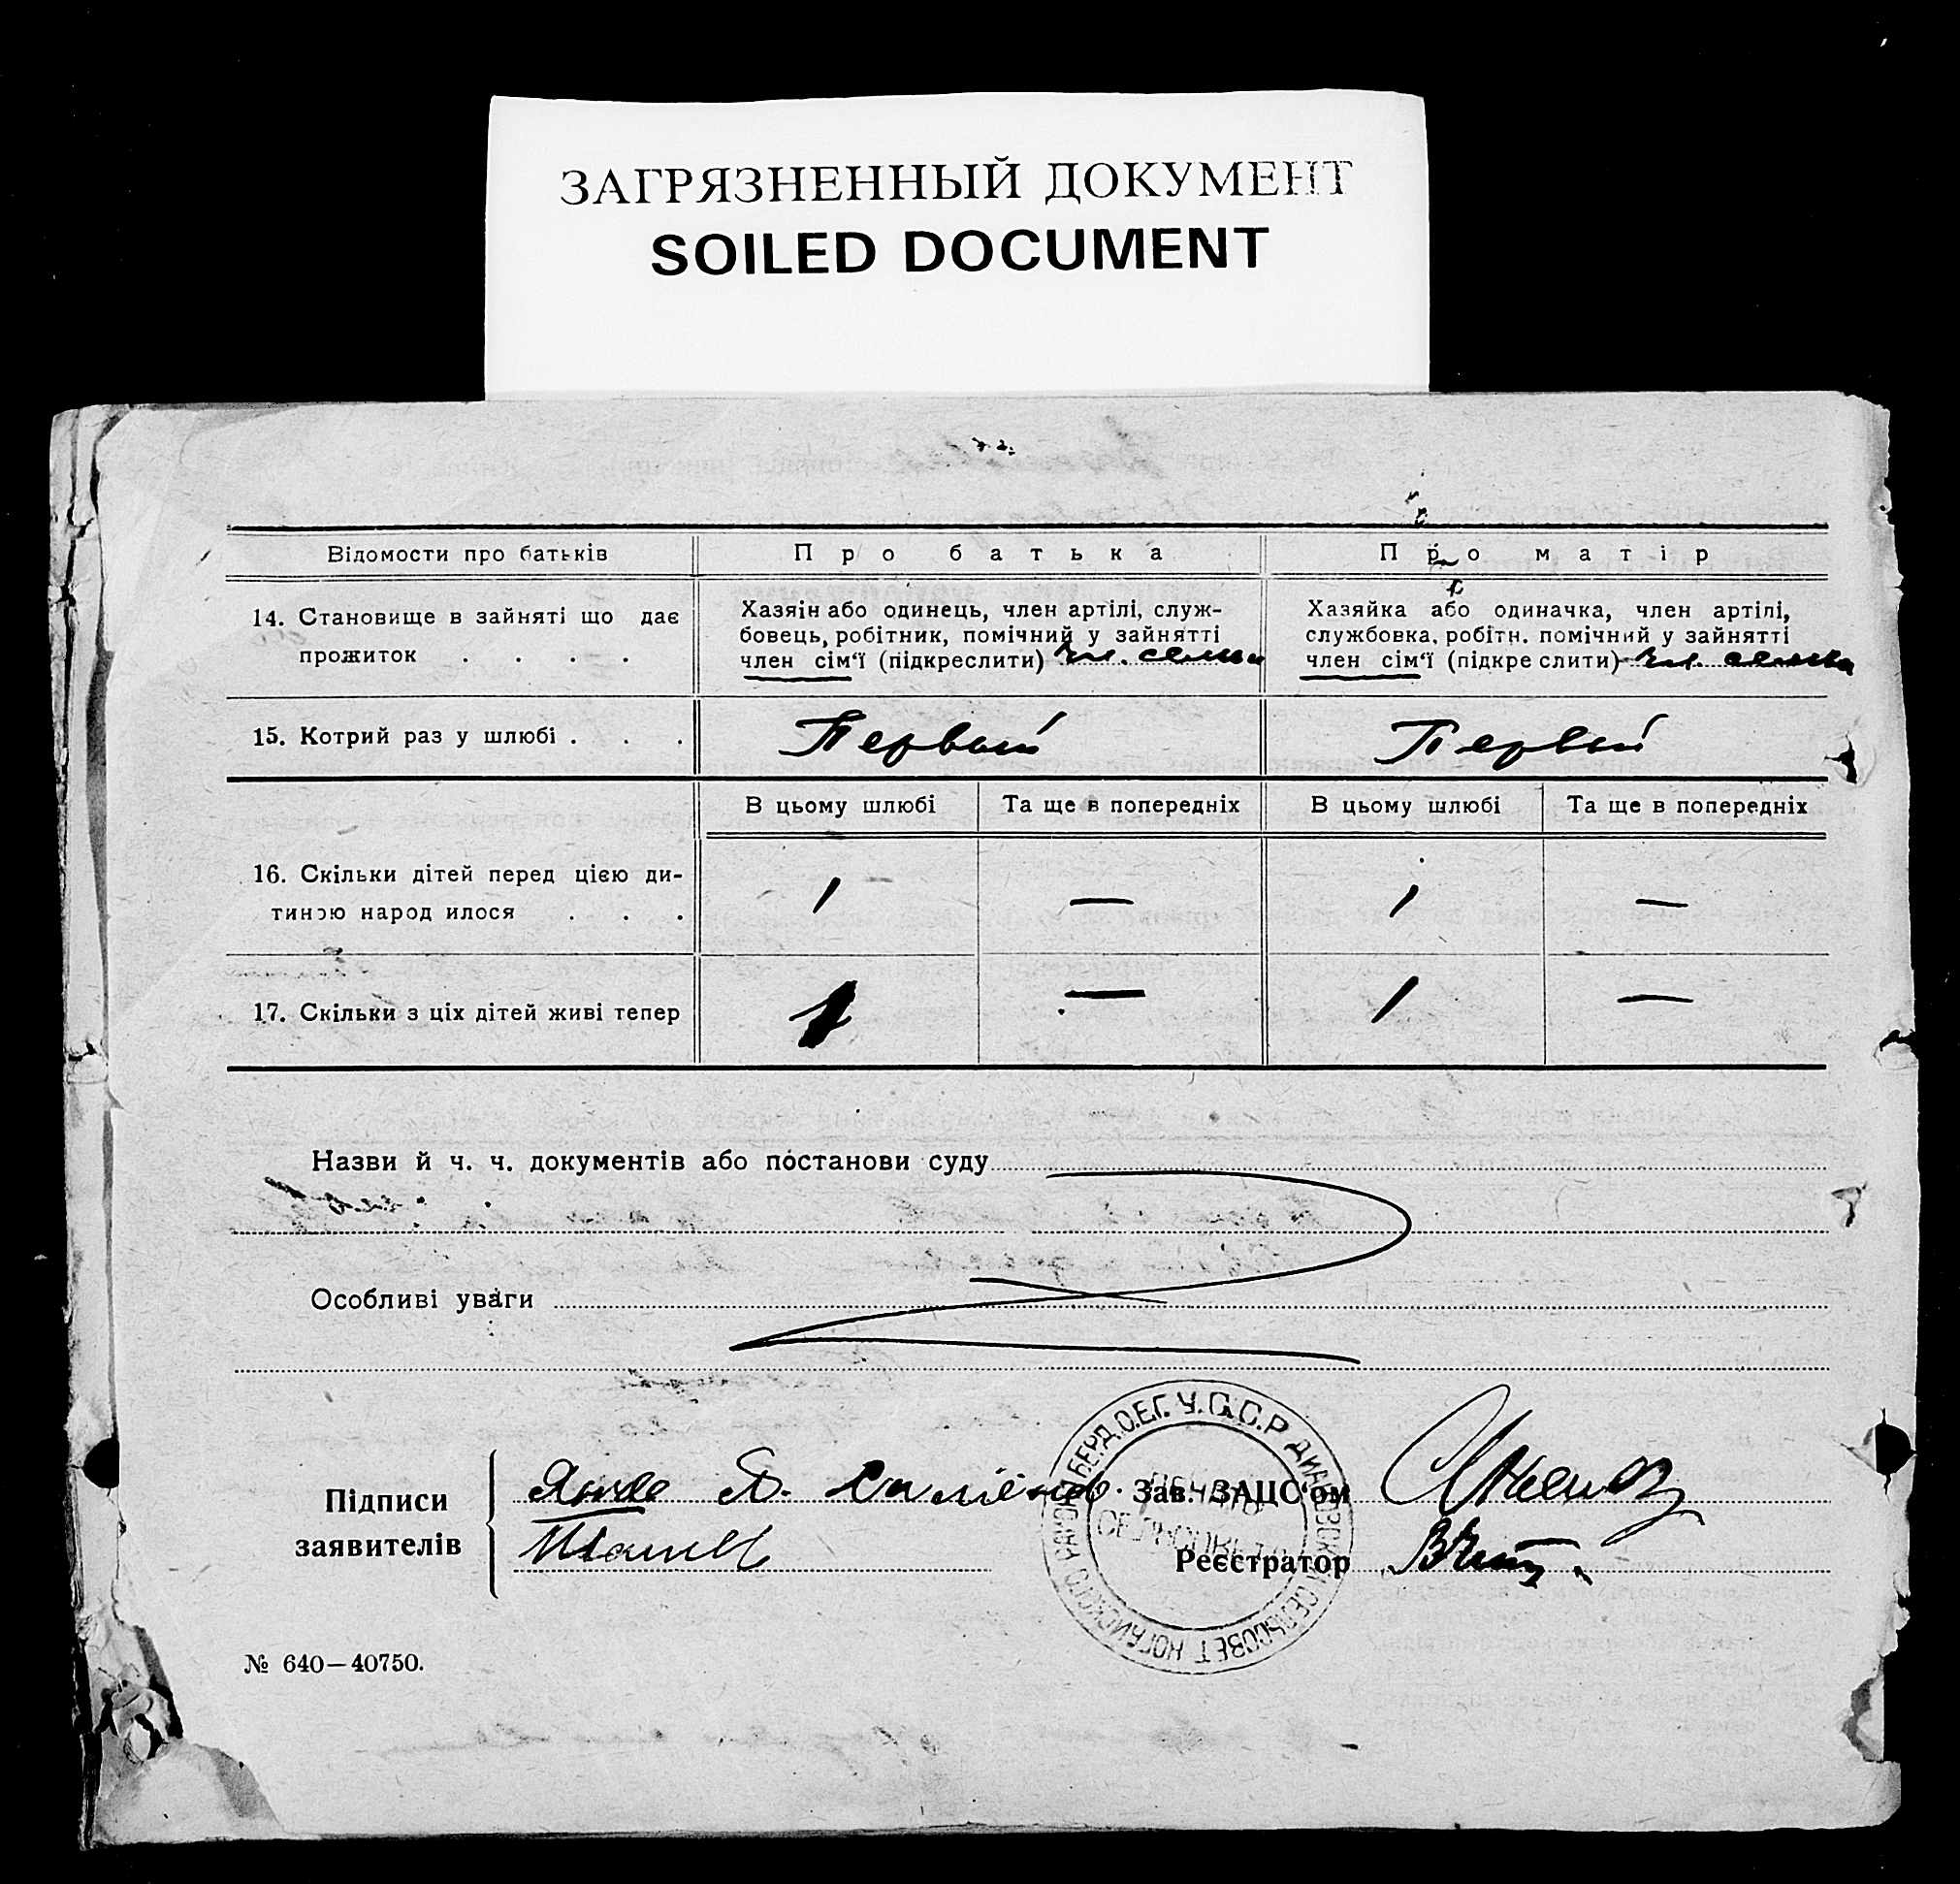 ЗАГРЯЗНЕННЫЙ ДОКУМЕНТ
SOILED DOCUMENT
Відомости про батьків
Про батька
Про матір
14. Становище в зайняті що дає
прожиток . . . .
Хазяін або одинець, член артілі, служ-
бовець, робітник, помічний у зайнятті
член сім'ї (підкреслити) чл. семьи
Хазяйка або одиначка, член артілі,
службовка, робітн. помічний у зайнятті
член сім'ї (підкреслити) чл. семьи
15. Котрий раз у шлюбі . . .
Первый
Первый
В цьому шлюбі
Та ще в попередніх
В цьому шлюбі
Та ще в попередніх
16. Скільки дітей перед цією ди-
тиною народилося . . .
1
—
1
—
17. Скільки з ціх дітей живі тепер
1
—
1
—
Назви й ч. ч. документів або постанови суду
Особливі уваги
Підписи
заявителів
Зав. ЗАЦС'ом
Реєстратор
У.С.С.Р. БЕРД.ОЕГ. НОГАЙСКОГО РАЙОН СЕЛЬСОВЕТ
№ 640—40750.